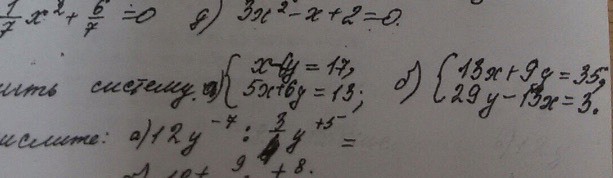 1/7 x² + 6/7 = 0 д) 3x² - x + 2 = 0.
ить систему. а) { x - 6y = 17,
5x + 6y = 13; б) { 13x + 9y = 35;
29y - 13x = 3.
ислите: а) 12y⁻⁷ : 3/4 y⁺⁵ =